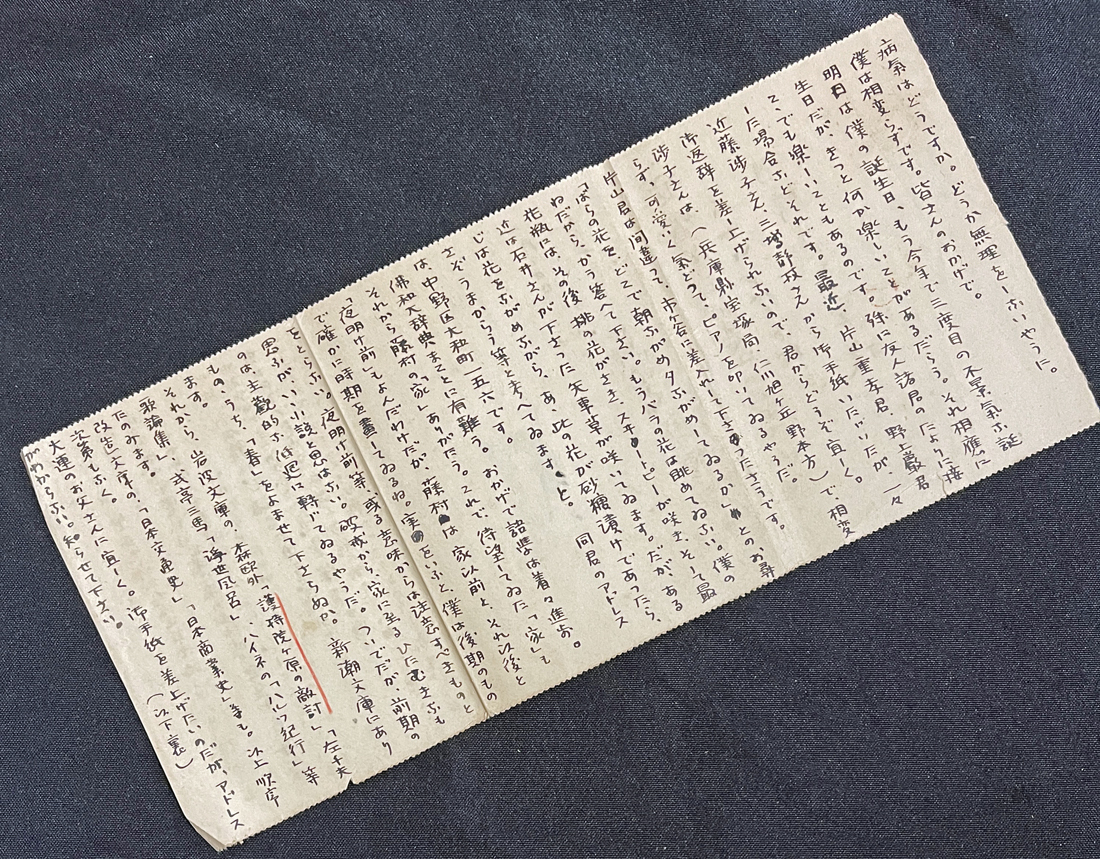 病氣はどうですか。どうか無理をしないやうに。
僕は相変らずです。皆さんのおかげで。
明日は僕の誕生日、もう今年で三度目の不景氣な誕
生日だが、きっと何か楽しいことがあるだらう。それ相應に
こゝでも楽しいこともあるのです。殊に友人諸君のたよりに接
した場合などそれです。最近、片山重孝君、野上巌君、
近藤渉子さん、三塲静枝さんから御手紙いただいたが、一々
御返辞を差し上げられないので、君からどうぞ宜しく。
渉子さんは、(兵庫縣宝塚局 仁川旭ヶ丘 野本方)で相変
らず、可愛いく氣どってピアノを叩いてゐるやうだ。
片山君は間違って、市ヶ谷に差入れして下さったさうです。
「ばらの花を、どこで朝ながめ夕ながめしてゐるか」とのお尋
ねだから、かう答へて下さい。もうバラの花は眺めてゐない。僕の
花瓶には、その後、桃の花がさき、スヰートピーが咲き、そして最
近は石井さんが下さった矢車草が咲いてゐます。だが、ある
ひは花をながめながら、あゝ此の花が砂糖漬けであったら、
さぞうまからう等と考へてゐます、と。 同君のアドレス
は中野區大和町一五六です。
佛和大辞典まことに有難う。おかげで語學は着々進む。
それから藤村の「家」ありがたう。これで、待望してゐた「家」も
「夜明け前」もよんだわけだが、藤村は家以前と、それ以後と
で確かに時期を畫してゐるね。実をいふと、僕は後期のもの
をとらない。夜明け前等、或る意味からは注意すべきものと
思ふがいゝ小説と思はない。破戒から家に至るひたむきなも
のは主觀的な低徊に轉じてゐるやうだ。ついでだが、前期の
ものゝうち、「春」をよませて下さらぬか。新潮文庫にあり
ます。
それから、岩波文庫の、森鷗外「護持院ヶ原の敵討」「左千夫
歌論集」、式亭三馬「浮世風呂」、ハイネの「ハルツ紀行」等
たのみます。
改造文庫の「日本交通史」「日本商業史」等も。以上順序
次第もなく。
大連のお父さんに宜しく。御手紙を差上げたいのだが、アドレス
がわからない。知らせて下さい。 (以下裏)